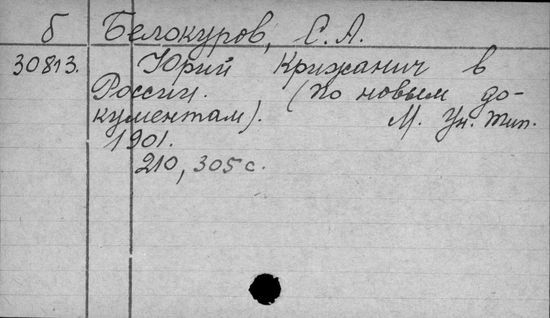 б Белокуров, С. А.
30813. Юрий Крижанич в
России. (По новым до-
кументам). М. Ун. тип.
1901.
210, 305 с.